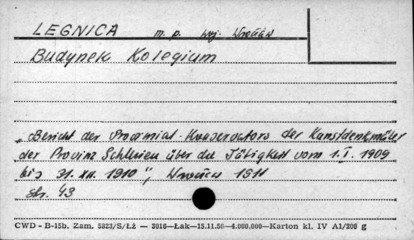 LEGNICA m. p. woj. Wrocław
Budynek Kolegium
„Bericht der Prowinzial-Konservators der Kunstdenkmäler
der Provinz Schlesien über die Tätigkeit vom 1.I. 1909
bis 31.XII. 1910", Wrocław 1911
str. 43
CWD - B-15b. Zam. 5823/S/Łż — 3016—Łak—15.11.56—4.000.000—Karton kl. IV A1/200 g